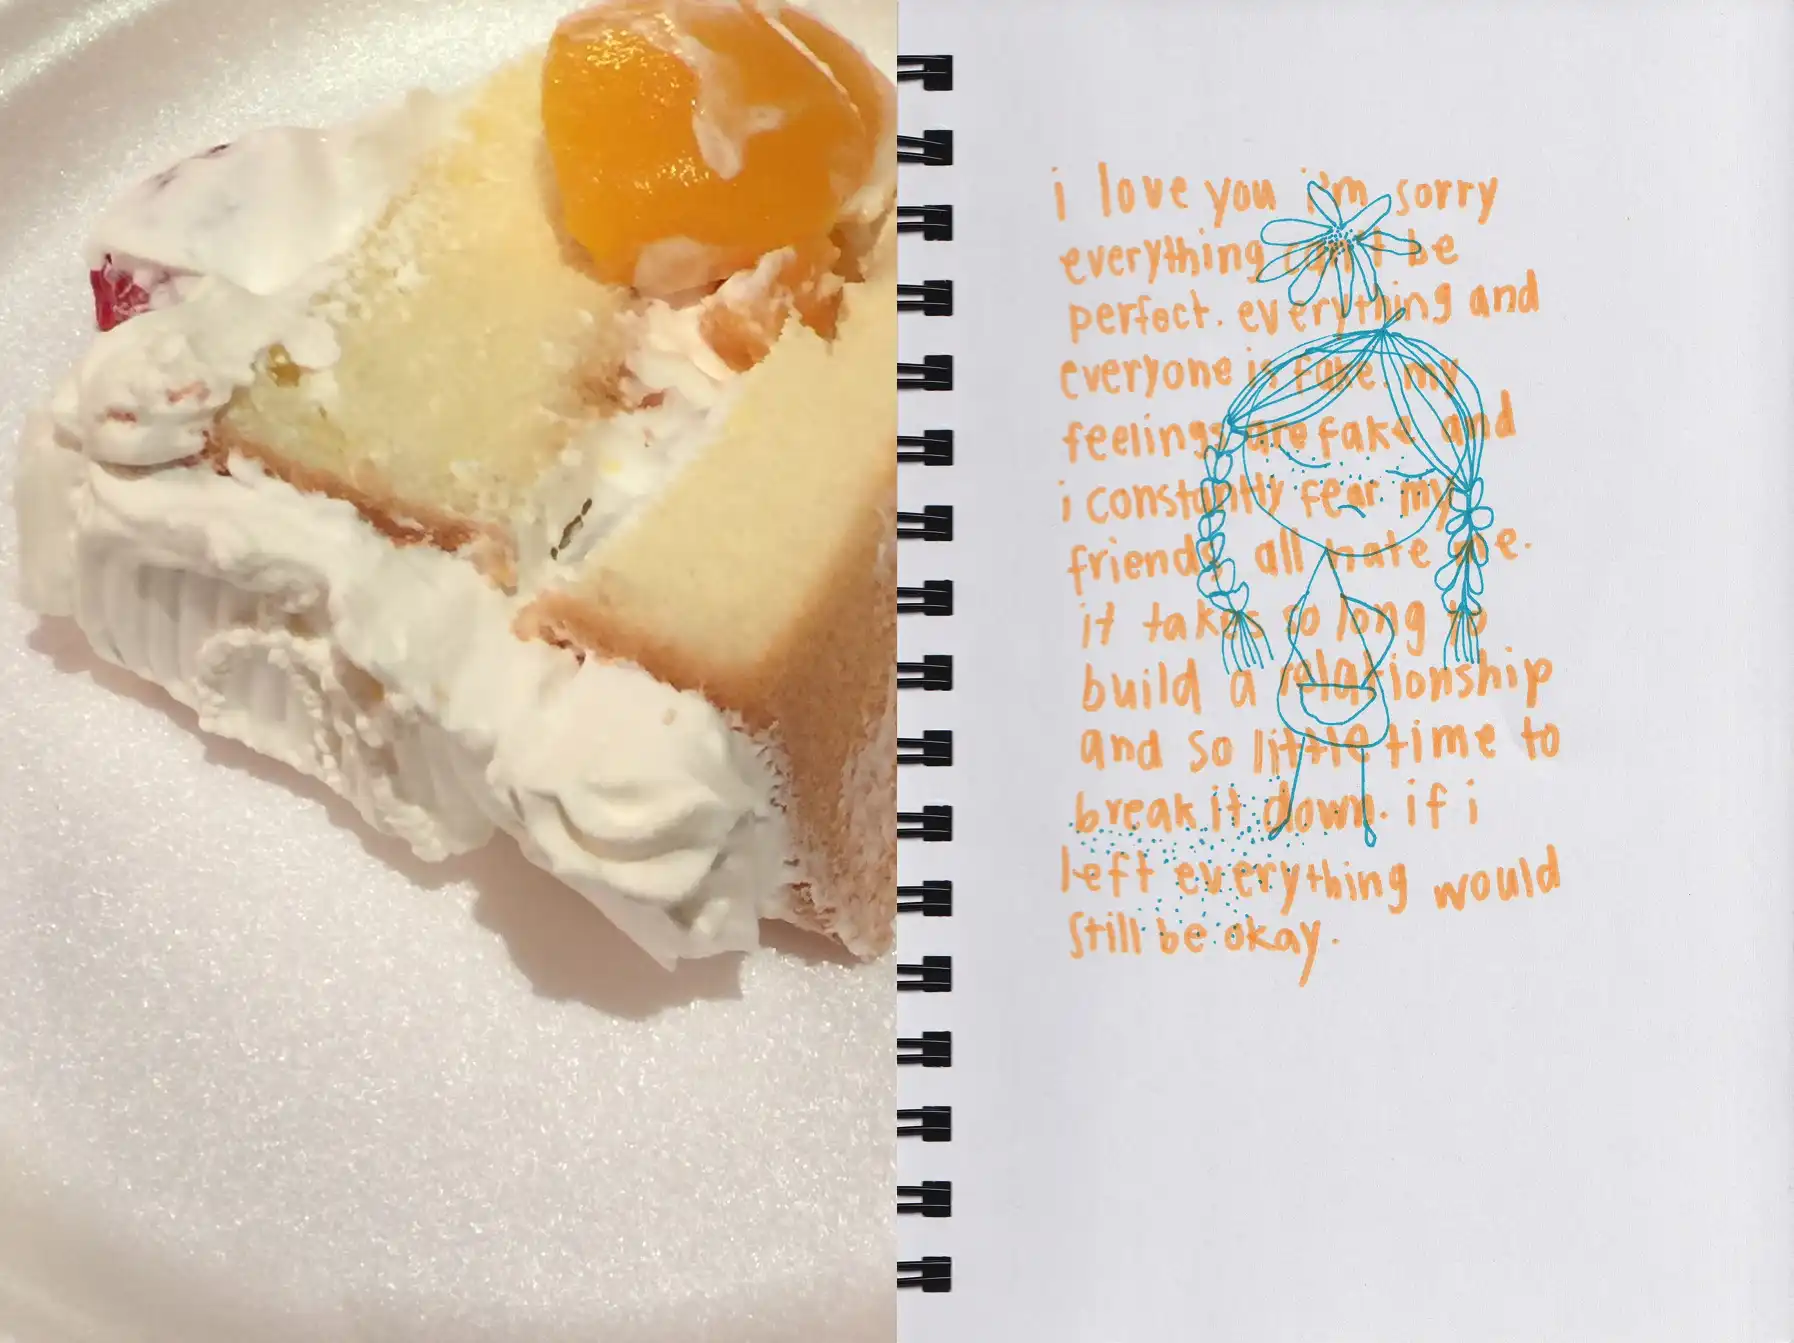 i love you i'm sorry
everything can't be
perfect. everything and
everyone is fake. my
feelings are fake and
i constantly fear my
friends all hate me.
it takes so long to
build a relationship
and so little time to
break it down. if i
left everything would
still be okay.